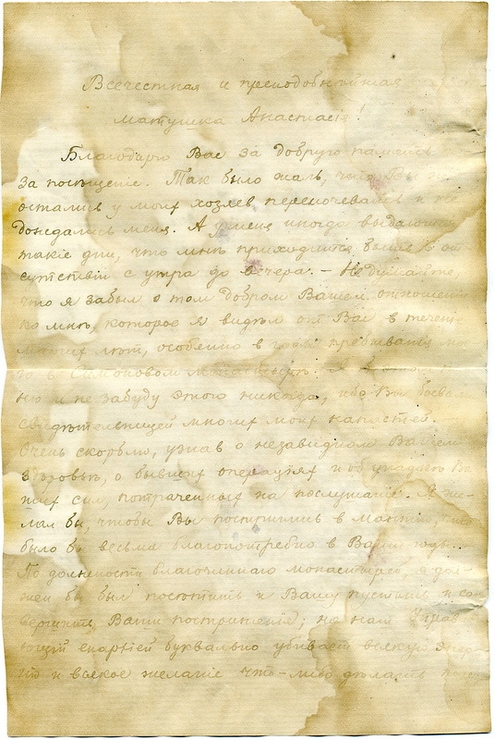 Всечестная и преподобнѣйшая
матушка Анастасія!
Благодарю Вас за добрую память
за посѣщеніе. Так было жаль, что Вы не
остались у моих хозяев переночевать и не
дождались меня. А у меня иногда выдаются
такіе дни, что мнѣ приходится бывать в от-
сутствіи с утра до вечера. — Не думайте,
что я забыл о том добром Вашем отношеніи
ко мнѣ, которое я видѣл от Вас в теченіи
многих лѣт, особенно в годы пребыванія мо-
го в Симоновом монастырѣ. Я
ню и не забуду этого никогда, ибо Вы
свидѣтельницей многих моих напастей.
Очень скорблю, узнав о незавидном Вашем
здоровьи, о бывших операціях и об упадкѣ Ва-
ших сил, потраченных на послушаніе. Я же-
лал бы, чтобы Вы постриглись в мантію, что
было бы весьма благопотребно в Ваши годы.
По должности благочиннаго монастырей, я дол-
жен бы был посѣтить и Вашу пустынь и со-
вершить Ваше постриженіе; но нам Управ-
ющій епархіей буквально убивает всякую энер-
гію и всякое желаніе что-либо дѣлать